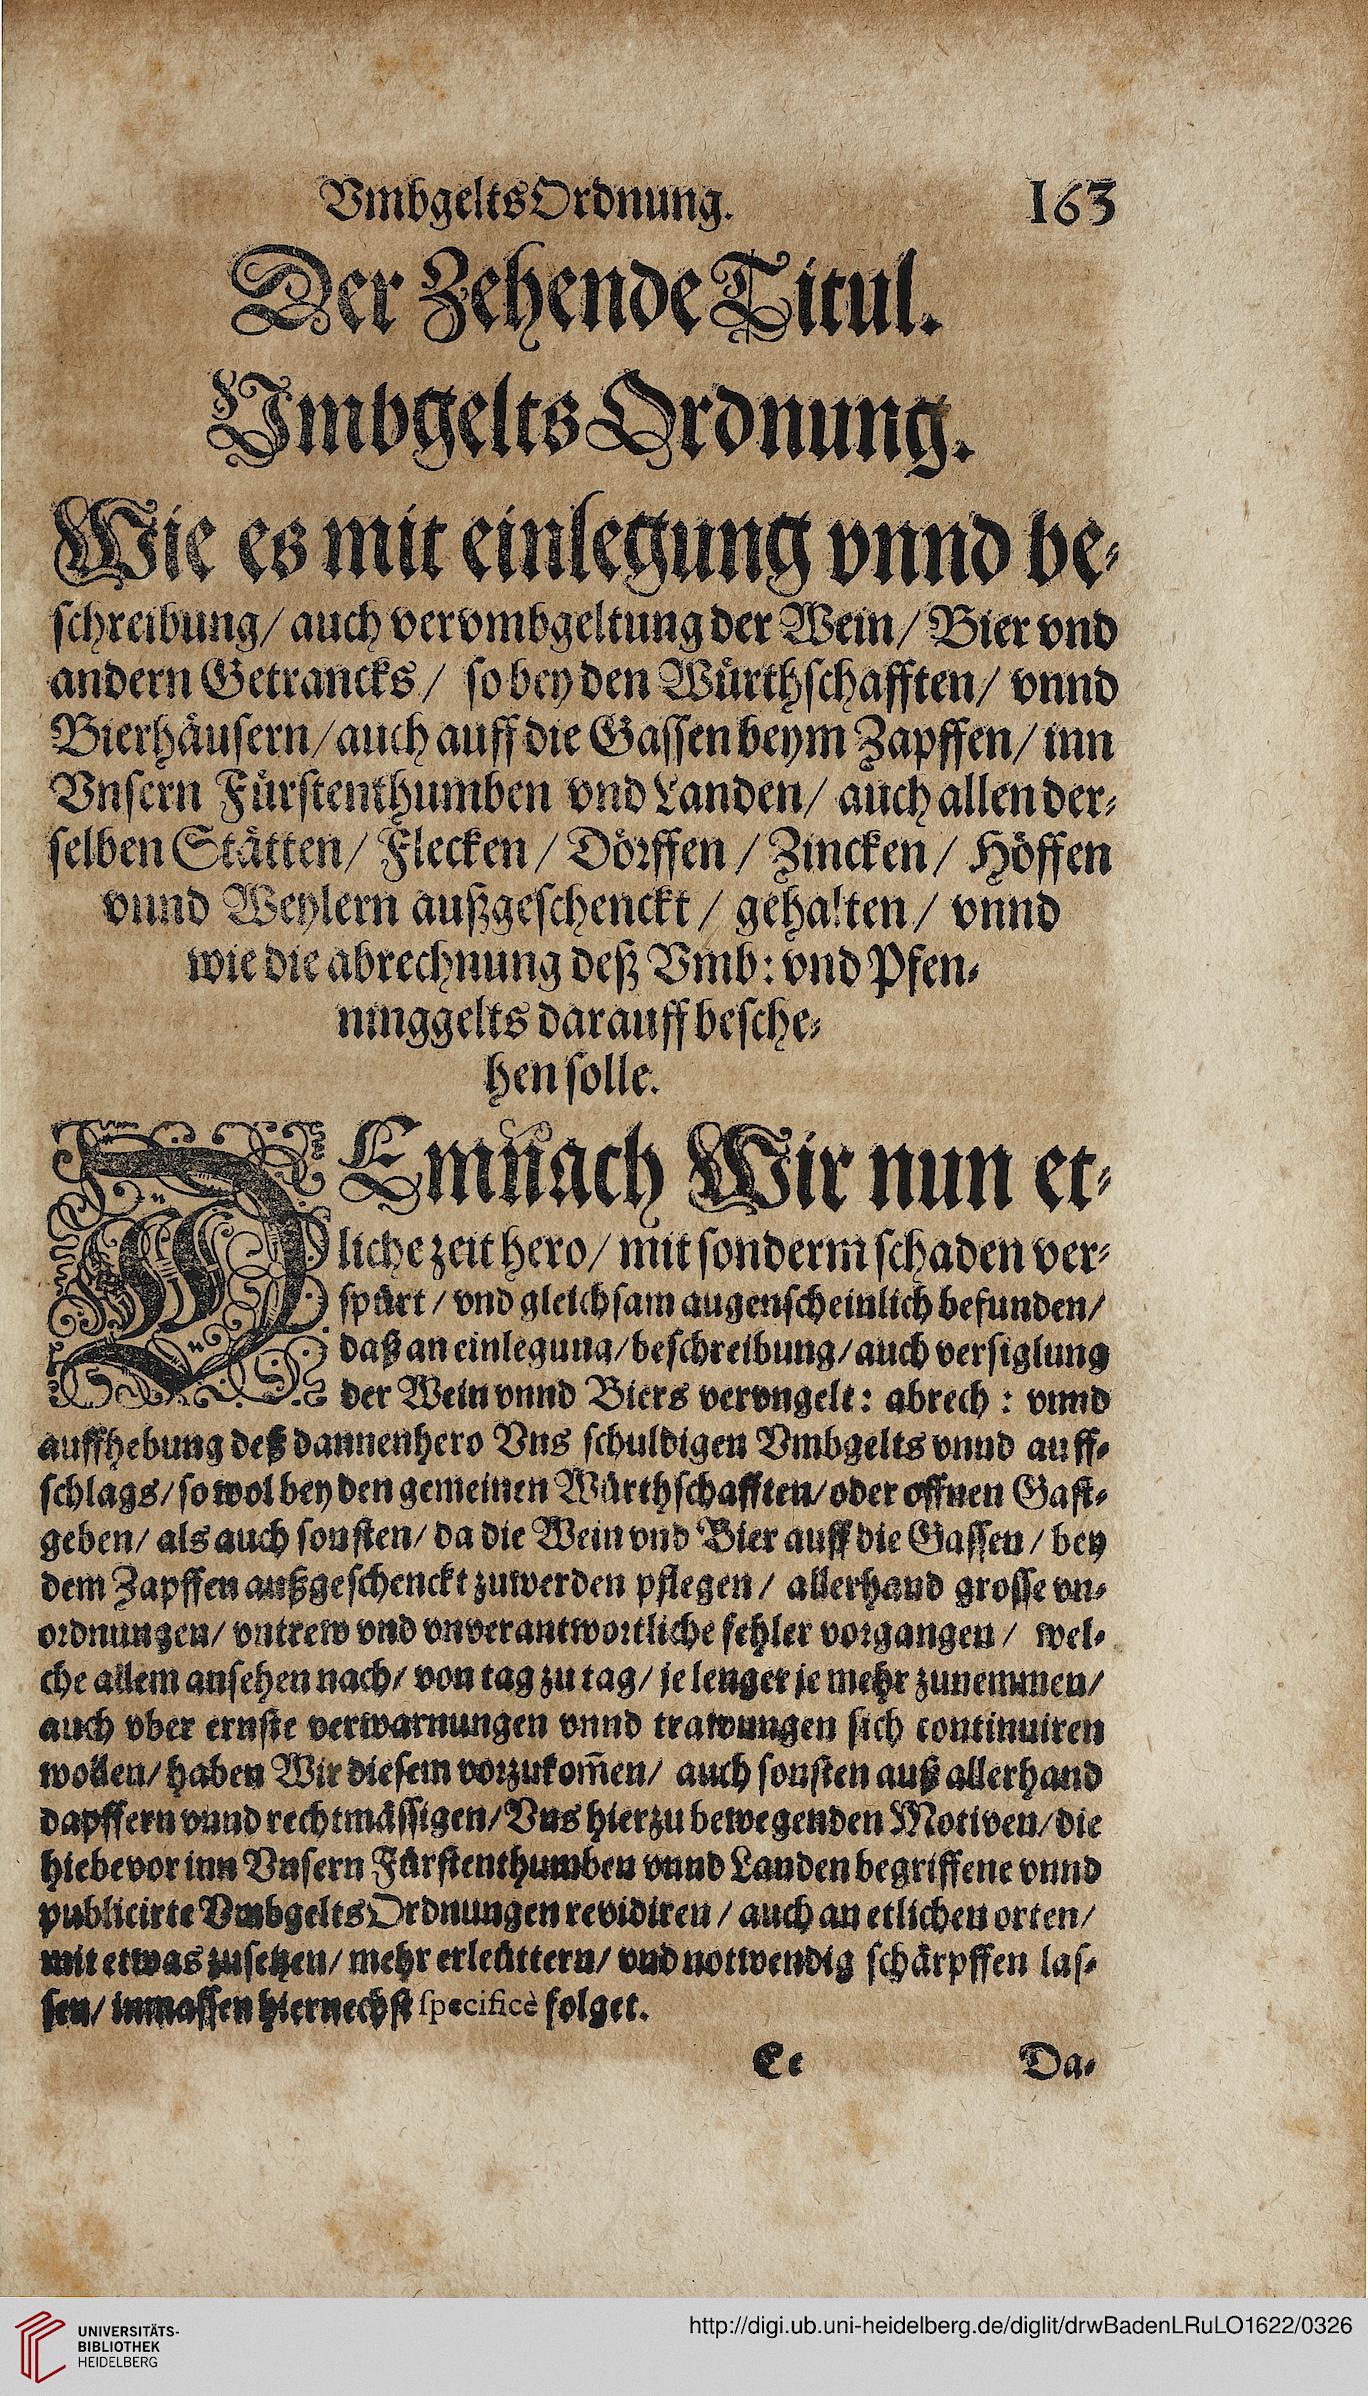 VmbgeltsOrdnung. 163
Der Zehende Titul.
Vmbgelts Ordnung.
Wie es mit einlegung vnnd be⸗
schreibung/ auch vervmbgeltung der Wein/ Bier vnd
andern Getrancks/ so bey den Würthschafften/ vnnd
Bierhäusern/ auch auff die Gassen beym Zapffen/ inn
Vnsern Fürstenthumben vnd Landen/ auch allen der⸗
selben Stätten/ Flecken/ Dörffen/ Zincken/ Höffen
vnnd Weylern außgeschenckt/ gehalten/ vnnd
wie die abrechnung deß Vmb: vnd Pfen⸗
ninggelts darauff besche⸗
hen solle.
DEmnach Wir nun et⸗
liche zeit hero/ mit sonderm schaden ver⸗
spürt/ vnd gleichsam augenscheinlich befunden/
daß an einlegung/ beschreibung/ auch versiglung
der Wein vnnd Biers vervngelt: abrech: vnnd
auffhebung deß dannenhero Vns schuldigen Vmbgelts vnnd auff⸗
schlags/ so wol bey den gemeinen Würthschafften/ oder offnen Gast⸗
geben/ als auch sonsten/ da die Wein vnd Bier auff die Gassen/ bey
dem Zapffen außgeschenckt zuwerden pflegen/ allerhand grosse vn⸗
ordnungen/ vntrew vnd vnverantwortliche fehler vorgangen/ wel⸗
che allem ansehen nach/ von tag zu tag/ je lenger je mehr zunemmen/
auch vber ernste verwarnungen vnnd trawungen sich continuiren
wöllen/ haben Wir diesem vorzukom̄en/ auch sonsten auß allerhand
dapffern vnnd rechtmässigen/ Vns hierzu bewegenden Motiven/ die
hiebevor inn Vnsern Fürstenthumben vnnd Landen begriffene vnnd
publicirte VmbgeltsOrdnungen revidiren/ auch an etlichen orten/
mit etwas zusetzen/ mehr erleüttern/ vnd notwendig schärpffen las⸗
sen/ inmassen hiernechst specificè folget.
Ee Da⸗
UNIVERSITÄTS-
BIBLIOTHEK
HEIDELBERG
http://digi.ub.uni-heidelberg.de/diglit/drwBadenLRuLO1622/0326